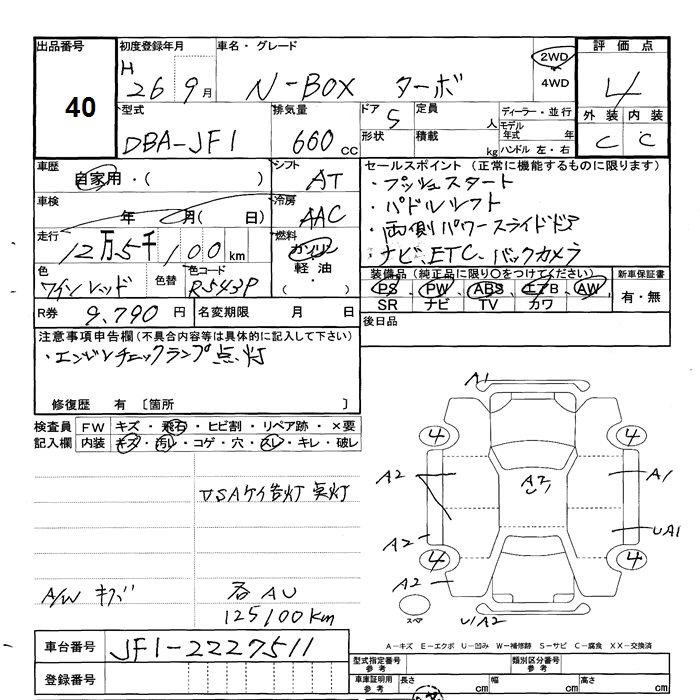 出品番号 初度登録年月 車名・グレード 評価点
40 H 26 9月 N-BOX ターボ 2WD 4WD 4
型式 排気量 ドア 5 定員 人 ディーラー・並行 外装 内装
DBA-JF1 660cc 形状 積載 kg モデル年式 年 ハンドル 左・右 C C
車歴 シフト セールスポイント(正常に機能するものに限ります)
自家用・( ) AT ・プッシュスタート
車検 冷房 ・パドルシフト
年 月( 日) AAC ・両側パワースライドドア
走行 燃料 ・ナビ、ETC、バックカメラ
12万5千100km ガソリン 軽油 ・( )
色 色替 色コード 装備品(純正品に限り○をつけてください) 新車保証書
ワインレッド R543P PS PW ABS エアB AW 有・無
SR ナビ TV カワ
R券 9,790円 名変期限 月 日 後日品
注意事項申告欄(不具合内容等は具体的に記入して下さい)
・エンジンチェックランプ点灯
修復歴 有 〔箇所 〕
検査員 FW キズ・飛石・ヒビ割・リペア跡・×要
記入欄 内装 キズ・汚レ・コゲ・穴・スレ・キレ・破レ
A1
4 4
A2 A2 U A1
VSAケイ告灯 点灯
A2 UA1
4 4
A2
A/W キズ 各AU
125100km
スペア UA2
車台番号 JF1-2227511
A-キズ E-エクボ U-凹み W-補修跡 S-サビ C-腐食 XX-交換済
登録番号
型式指定番号 参考 類別区分番号 参考
車庫証明用 参考 長さ cm 幅 cm 高さ cm